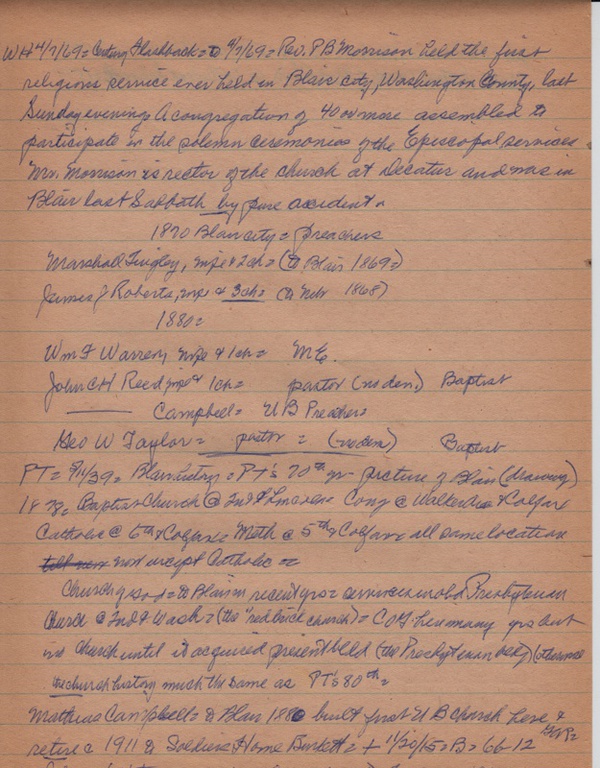 WH 4/7/69 = Century Flashback = 4/7/69 = Rev. P B Morrison held the first
religious service ever held in Blair city, Washington County, last
Sunday evening. A congregation of 40 or more assembled to
participate in the solemn ceremonies of the Episcopal services.
Mr. Morrison is rector of the church at Decatur and was in
Blair last Sabbath by pure accident.
1870 Blair city = preachers
Marshall Tingley, wife & 2 ch = (to Blair 1869=)
James J Roberts, wife & 3 ch = (to Neb 1868)
1880 =
Wm F Warren, wife & 1 ch = M E.
John C H Reed wife & 1 ch = pastor (no den.) Baptist
Campbell = U B Preacher =
Geo W Taylor = pastor = (no den) Baptist
PT = = Blair history = PT's 70th yr = picture of Blair (drawing)
Baptist Church @ 2nd & Cong @ Walker Ave & Colfax
Catholic @ 6th & Colfax = Meth @ 5th & Colfax = all same location
till now now except Catholic =
Church of God = to Blair in recent yrs = services in old Presbyterian
Church @ 2nd & Wash = (the "red brick church") = C O G here many yrs but
no church until it acquired present bldg (the Presbyterian bldg) (otherwise
the church history much the same as PT's 80th =
Mathias Campbell = to Blair 1880 built first U B church here &
retire 1911 to Soldiers Home Burkett = + 11/20/15 = B = 66-12